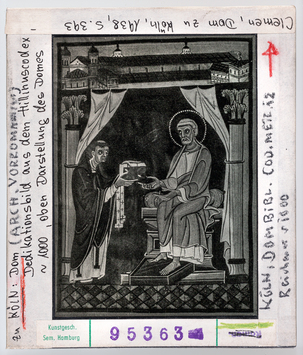 Clemen, Dom zu Köln, 1938, S. 393
zu KÖLN: Dom (ARCH. VORROMANIK)
Dedikationsbild aus dem Hillinuscodex
~ 1000, oben Darstellung des Domes
KÖLN, DOMBIBL. COD. METR. 12
Reichenau 1000
Kunstgesch.
Sem. Hamburg
95363